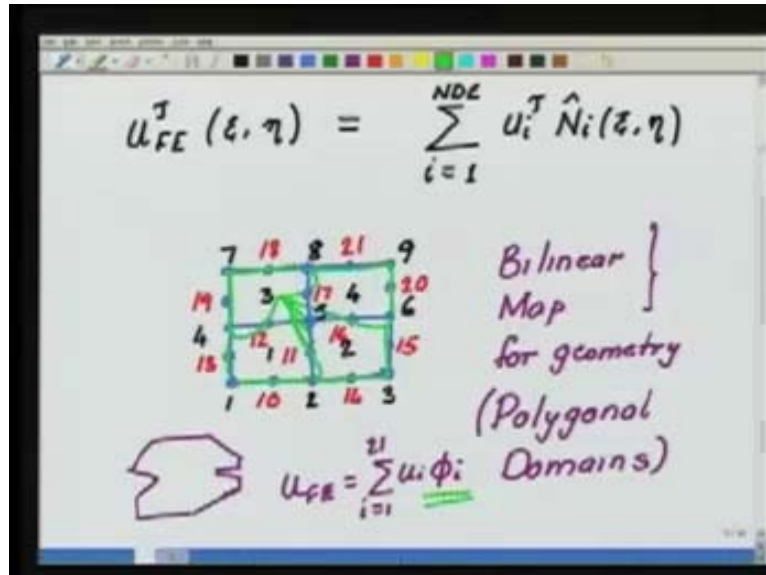 u_FE^J (ξ, η) = Σ_{i=1}^{NDL} u_i^J N̂_i (ξ, η)
7 18 8 21 9
19 3 17 4 20
4 12 5 16 6
13 1 11 2 15
1 10 2 14 3
Bilinear
Map
for geometry
(Polygonal
Domains)
u_FE = Σ_{i=1}^{21} u_i φ_i